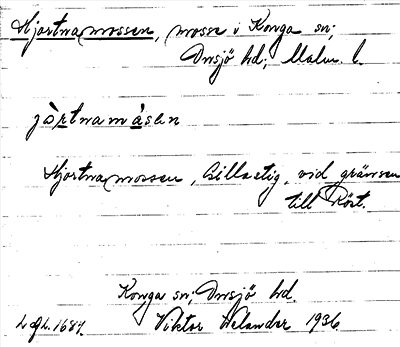 Hjortnamossen, mosse i Konga sn;
Onsjö hd; Malm. l.
jòrtnamåsen
Hjortnamossen, Billastig, vid gränsen
till Röst.
Konga sn; Onsjö hd.
Viktor Welander 1936.